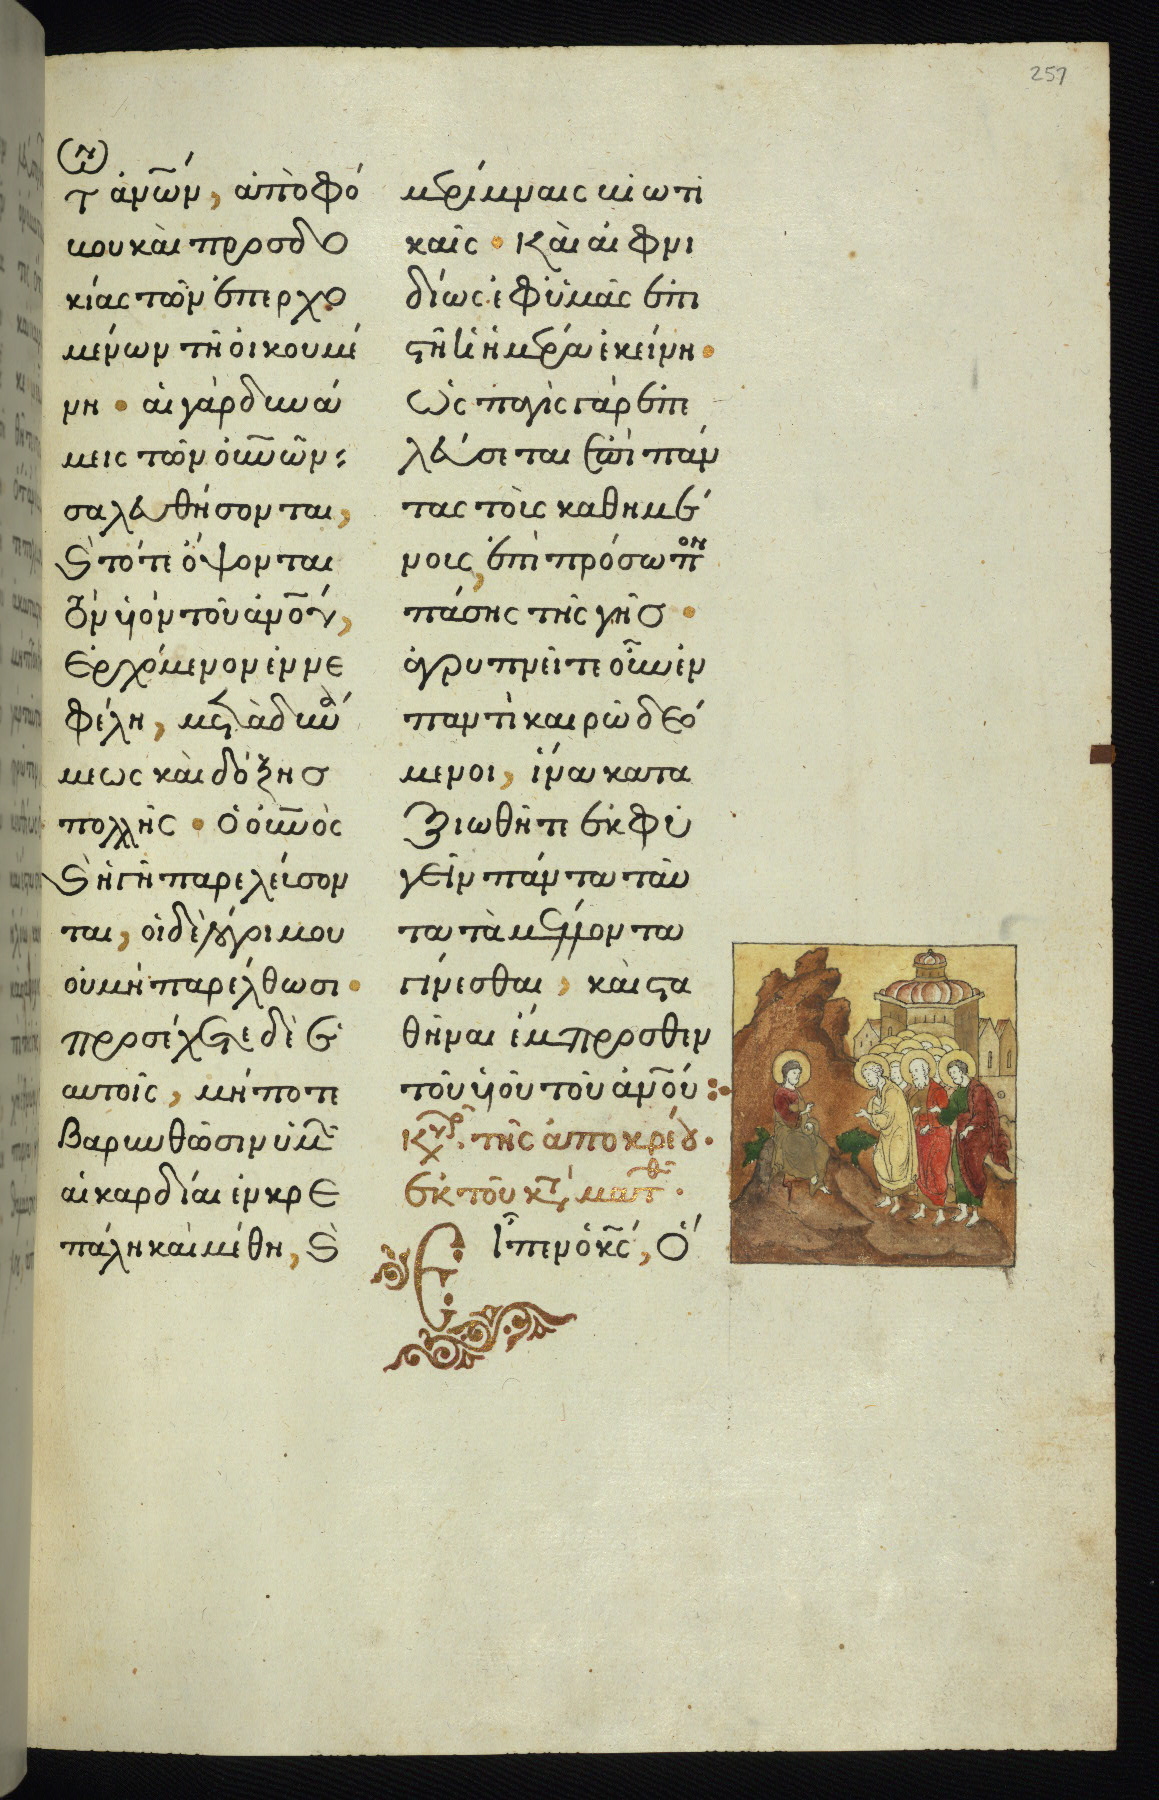 257
τ ἀν͞ων, ἀπὸ φό
βου καὶ προσδο
κίας τῶν ἐπερχο
μένων τῆ οἰκουμέ
νη • αἱ γὰρ δυνά
μεις τῶν οὐ͞νῶν
σαλευθήσονται,
ϗ τότε ὄψονται
τὸν υἱὸν τοῦ ἀν͞ου,
ἐρχόμενον ἐν νε
φέλη, μετὰ δυνά
μεως καὶ δόξης
πολλῆς • ὁ οὐ͞νὸς
ϗ ἡ γῆ παρελεύσον
ται, οἱ δὲ λόγοι μου
οὐ μὴ παρέλθωσι •
προσέχετε δὲ ἑ
αυτοῖς, μήποτε
βαρυνθῶσιν ὑμῶν
αἱ καρδίαι ἐν κρε
πάλη καὶ μέθη, ϗ
μερίμναις βιωτι
καῖς • καὶ αἰφνι
δίως ἐφ ὑμᾶς ἐπι
στῆ ἡ ἡμέρα ἐκείνη •
ὡς παγὶς γὰρ ἐπε
λεύσεται ἐπὶ πάν
τας τοὺς καθημέ
νους, ἐπὶ πρόσωπον
πάσης τῆς γῆς •
ἀγρυπνεῖτε οὖν ἐν
παντὶ καιρῶ δεό
μενοι, ἵνα κατα
ξιωθῆτε ἐκφυ
γεῖν πάντα ταῦ
τα τὰ μέλλοντα
γίνεσθαι, καὶ στα
θῆναι ἔμπροσθεν
τοῦ υἱοῦ τοῦ ἀν͞ου :
Κυρ. τῆς ἀποκρέου •
ἐκ τοῦ κτ ματθ •
Εἶπεν ὁ κ͞ς, ὅ